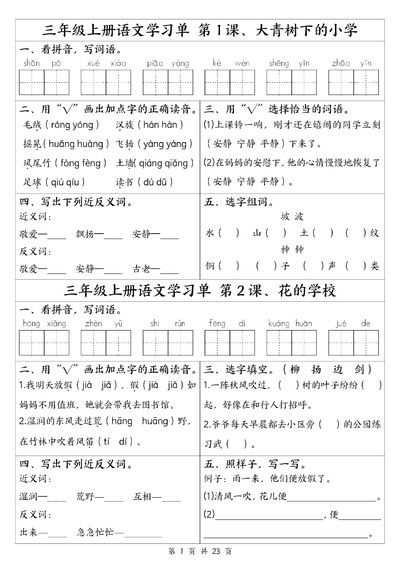 三年级上册语文学习单 第1课、大青树下的小学
一、看拼音，写词语。
shān pō xué xiào piāo yáng kè wén shēng yīn zhāo yǐn
二、用“√”画出加点字的正确读音。
毛绒（róng yóng） 汉族（hán hàn）
摇晃（huǎng huàng） 飞扬（yàng yáng）
凤尾竹（fòng fèng） 土墙（qiáng qiǎng）
足球（qiú qíu） 读书（dú dǔ）
三、用“√”选择恰当的词语。
(1)上课铃一响，刚才还在嬉闹的同学立刻
（安静 宁静 平静）下来了。
(2)在妈妈的安慰下，他的心情慢慢地恢复了
（安静 宁静 平静）。
四、写出下列近反义词。
近义词：
敬爱—____ 飘扬—____ 安静—____
反义词：
敬爱—____ 安静—____ 古老—____
五、选字组词。
坡 波
水（ ） 山（ ） 土（ ） （ ）纹
种 钟
铜（ ） （ ）子 （ ）声 （ ）类
三年级上册语文学习单 第2课、花的学校
一、看拼音，写词语。
huāng xiǎng zhèn yǔ shī rùn fēng dí kuáng huān jué de
二、用“√”画出加点字的正确读音。
1.我明天放假（jià jiǎ），假（jià jiǎ）如
妈妈不用值班，她就会带我去图书馆。
2.湿润的东风走过荒（hāng huāng）野，
在竹林中吹着风笛（tí dí）。
三、选字填空。（柳 扬 边 剑）
1.一阵秋风吹过，（ ）树的叶子纷纷（ ）
起，好像在和行人打招呼。
2.爷爷每天早晨都去小区旁（ ）的公园练
习武（ ）。
四、写出下列近反义词。
近义词：
湿润—____ 荒野—____ 互相—____
反义词：
出来—____ 急急忙忙—________
五、照样子，写一写。
例子：雨一来，他们便放假了。
(1)清风一吹，花儿便____________________。
(2)________________________，便________
________________________________。
第 1 页 共 23 页